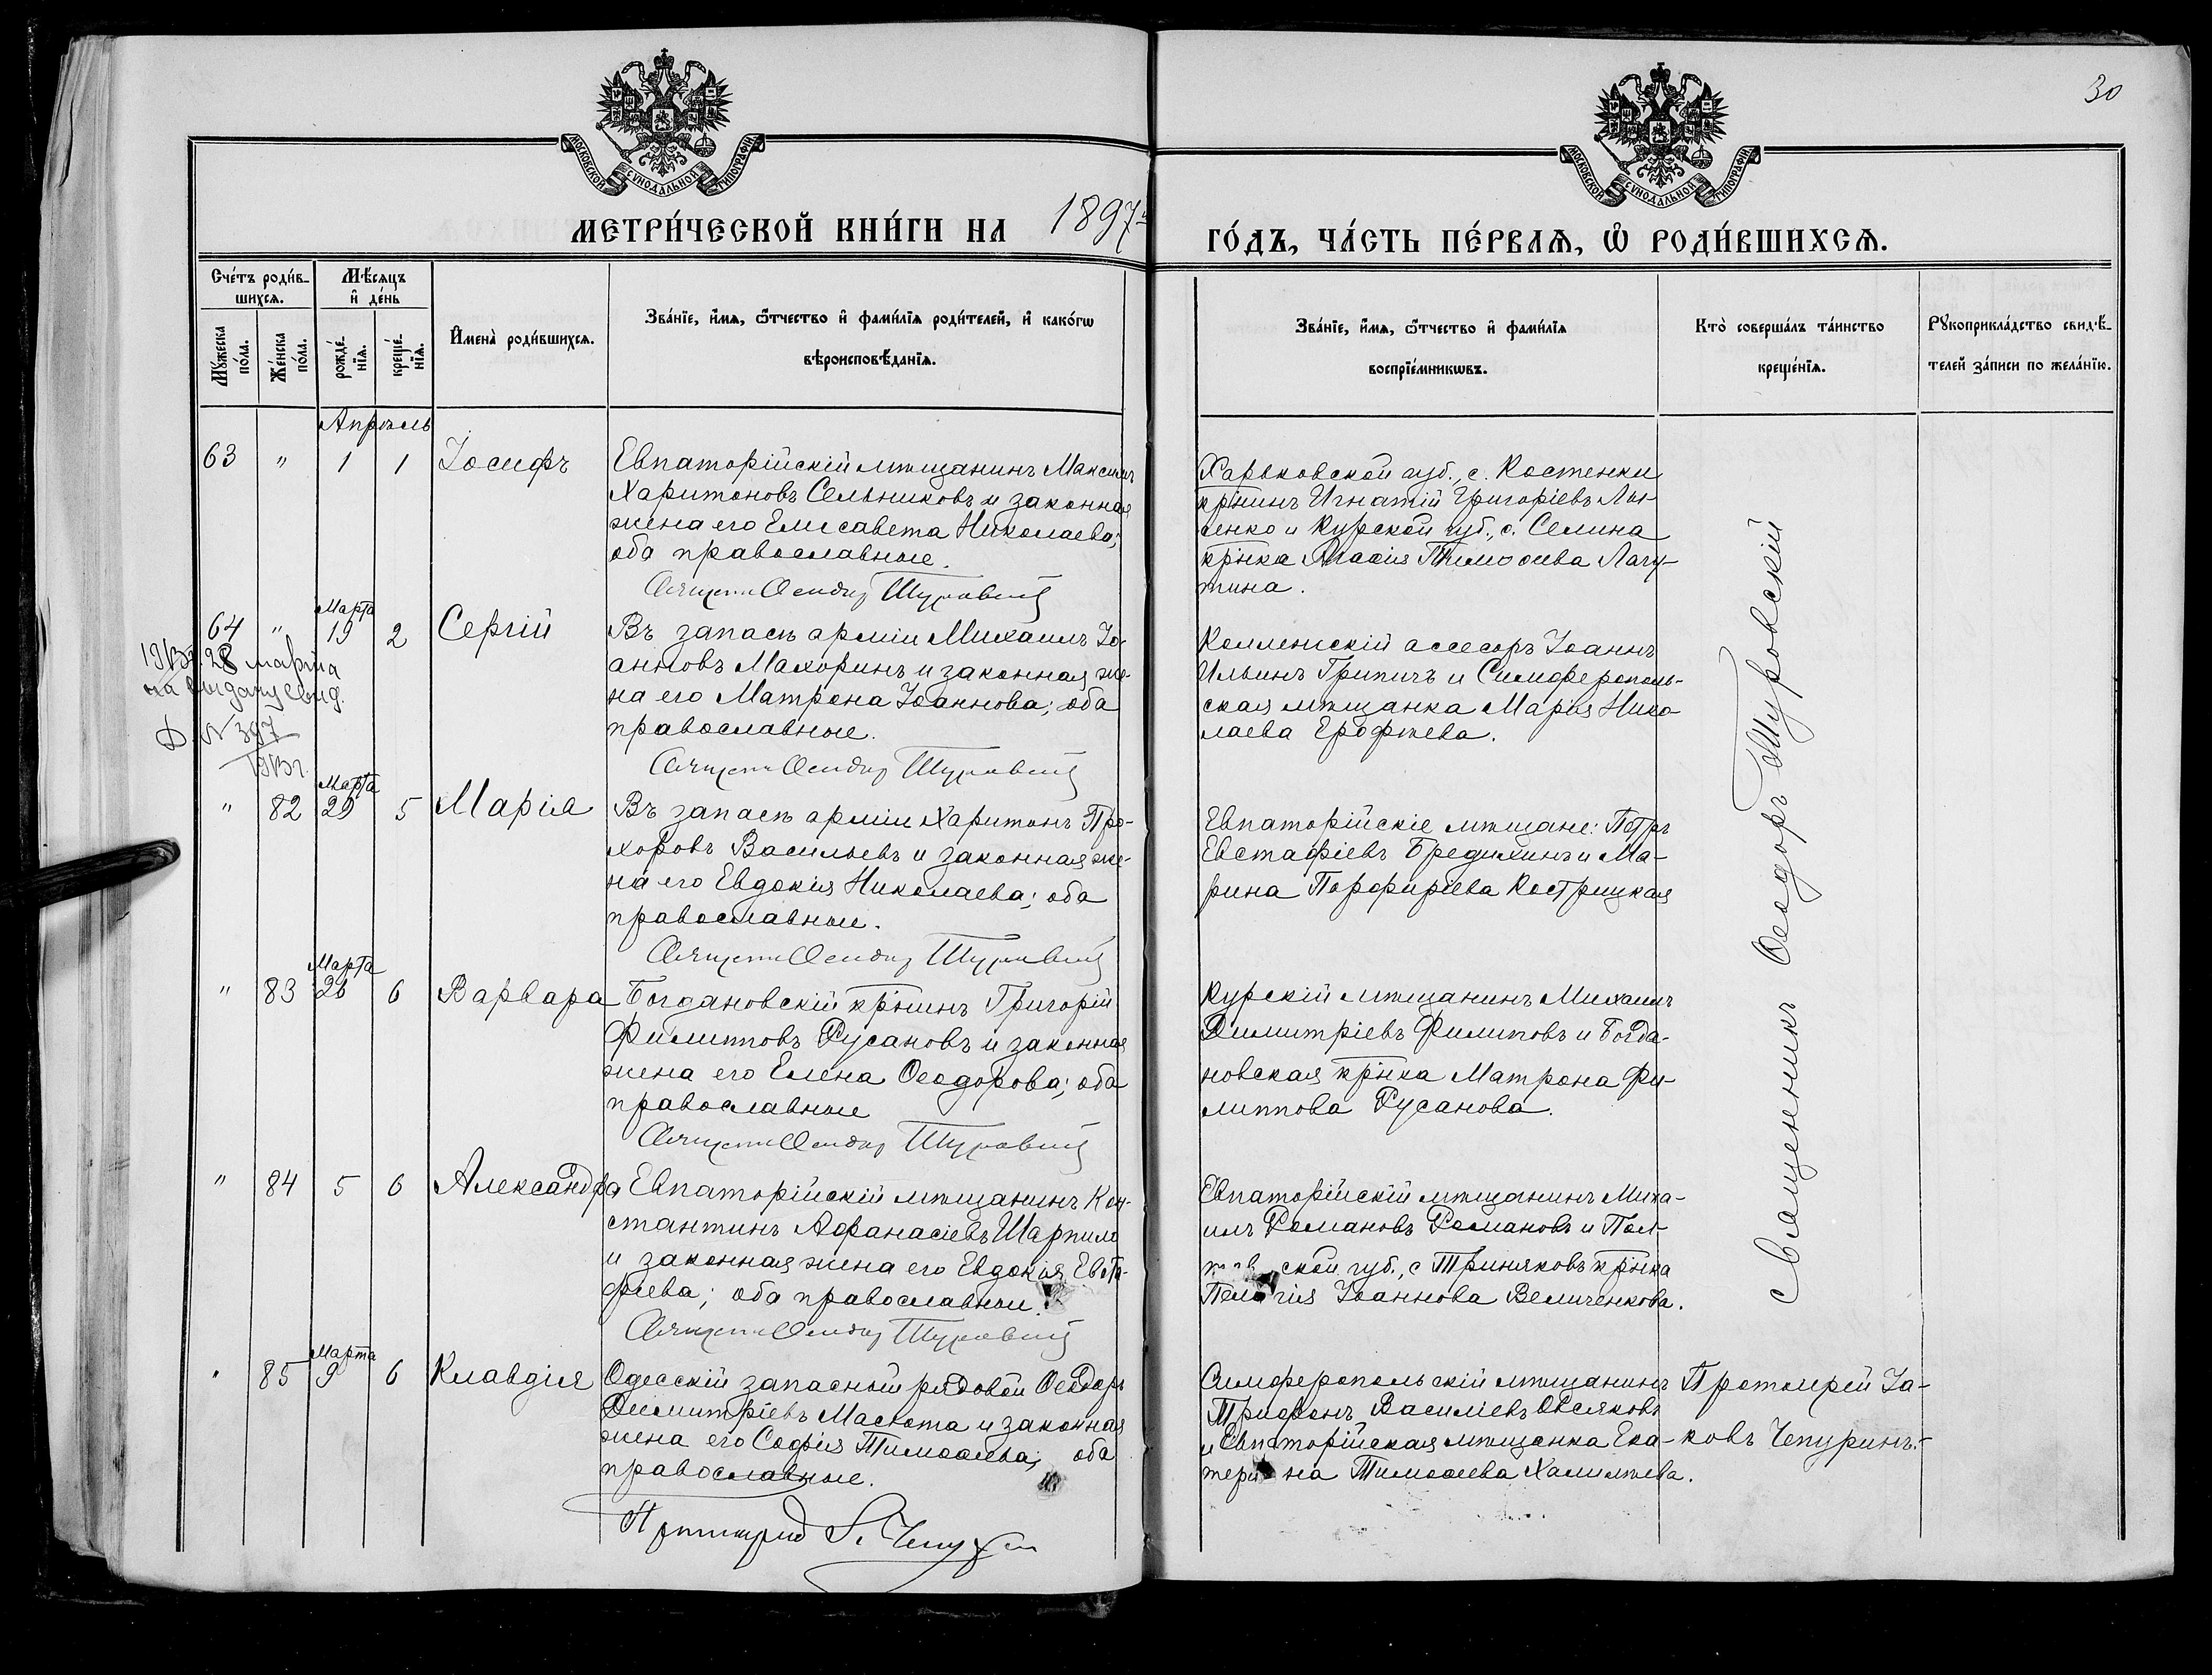 30
МОСКОВСКОЙ СѴНОДАЛЬНОЙ ТИПОГРАФІИ
МОСКОВСКОЙ СѴНОДАЛЬНОЙ ТИПОГРАФІИ
МЕТРИ́ЧЕСКОЙ КНИ́ГИ НА 1897й
ГО́ДЪ, ЧА́СТЬ ПЕ́РВАѦ, Ѽ РОДИ́ВШИХСѦ.
Сче́тъ роди́в-
шихсѧ.
Мꙋ́жеска
по́ла.
Же́нска
по́ла.
Мѣ́сѧцъ
и҆ де́нь
рожде́-
нїѧ.
креще́-
нїѧ.
И҆мена̀ роди́вшихсѧ.
Зва́нїе, и҆́мѧ, ѻ҆́тчество и҆ фами́лїѧ роди́телей, и҆ како́гѡ
вѣроисповѣ́данїѧ.
Зва́нїе, и҆́мѧ, ѻ҆́тчество и҆ фами́лїѧ
воспрїе́мникѡвъ.
Кто̀ соверша́лъ та́инство
креще́нїѧ.
Рꙋкоприкла́дство свидѣ́-
телей за́писи по жела́нїю.
Апрѣль
63 " 1 1 Іосифъ
Евпаторійскій мѣщанинъ Максимъ
Харитоновъ Сельниковъ и законная
жена его Елисавета Николаева;
оба православные.
Священ. Ѳеодор Туровский
Харьковской губ., с. Костенки
кр̄нинъ Игнатій Григоріевъ Лы-
сенко и Курской губ., с. Селина
кр̄нка Агаѳія Тимоѳеева Лагу-
тина.
64 " Марта 19 2 Сергій
Въ запасѣ арміи Михаилъ Іо-
анновъ Махоринъ и законная же-
на его Матрона Іоаннова; оба
православные.
Священ. Ѳеодор Туровский
Коллежскій ассесоръ Іоаннъ
Ильинъ Грипичъ и Симферополь-
ская мѣщанка Марія Нико-
лаева Ерофѣева.
1913г. 28 марта
на выдачу свид.
Д. № 397
1913г.
" 82 Марта 29 5 Марія
Въ запасѣ арміи Харитонъ Про-
хоровъ Васильевъ и законная же-
на его Евдокія Николаева; оба
православные.
Священ. Ѳеодор Туровский
Евпаторійскіе мѣщане: Петръ
Евстафіевъ Бредихинъ и Ма-
рина Порфиріева Кострицкая
" 83 Марта 26 6 Варвара
Богдановскій кр̄нинъ Григорій
Филипповъ Русановъ и законная
жена его Елена Ѳеодорова; оба
православные
Священ. Ѳеодор Туровский
Курскій мѣщанинъ Михаилъ
Димитріевъ Филиповъ и Богда-
новская кр̄нка Матрона Фи-
липпова Русанова.
" 84 5 6 Александра
Евпаторійскій мѣщанинъ Кон-
стантинъ Афанасіевъ Шарпило
и законная жена его Евдокія Евста-
фіева; оба православные.
Священ. Ѳеодор Туровский
Евпаторійскій мѣщанинъ Миха-
илъ Романовъ Романовъ и Пол-
тавской губ., с Триняковъ кр̄нка
Пелагія Іоаннова Величенкова.
Священникъ Ѳеодоръ Туровскій
" 85 Марта 9 6 Клавдія
Одесскій запасной рядовой Ѳеодоръ
Димитріевъ Масюта и законная
жена его Софія Тимоѳеева; оба
православные.
Протоиерей І. Чепурин
Симферопольскій мѣщанинъ
Трифонъ Василіевъ Овсяковъ
и Евпаторійская мѣщанка Ека-
терина Тимоѳеева Халимѣева.
Протоіерей Іа-
ковъ Чепуринъ.